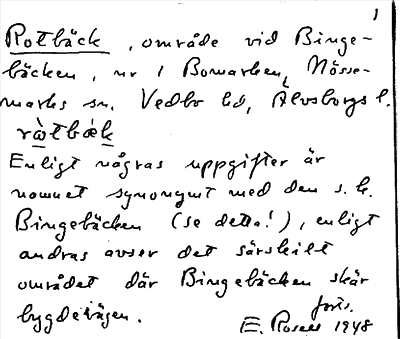 1
Rotbäck, område vid Binge-
bäcken, nr 1 Bomarken, Nösse-
marks sn, Vedbo hd, Älvsborgs l.
rà̤tbæ̀k
Enligt någras uppgifter är
namnet synonymt med den s.k.
Bingebäcken (se detta!), enligt
andras avser det särskilt
området där Bingebäcken skär
bygdevägen.
förts.
E. Rosell 1948